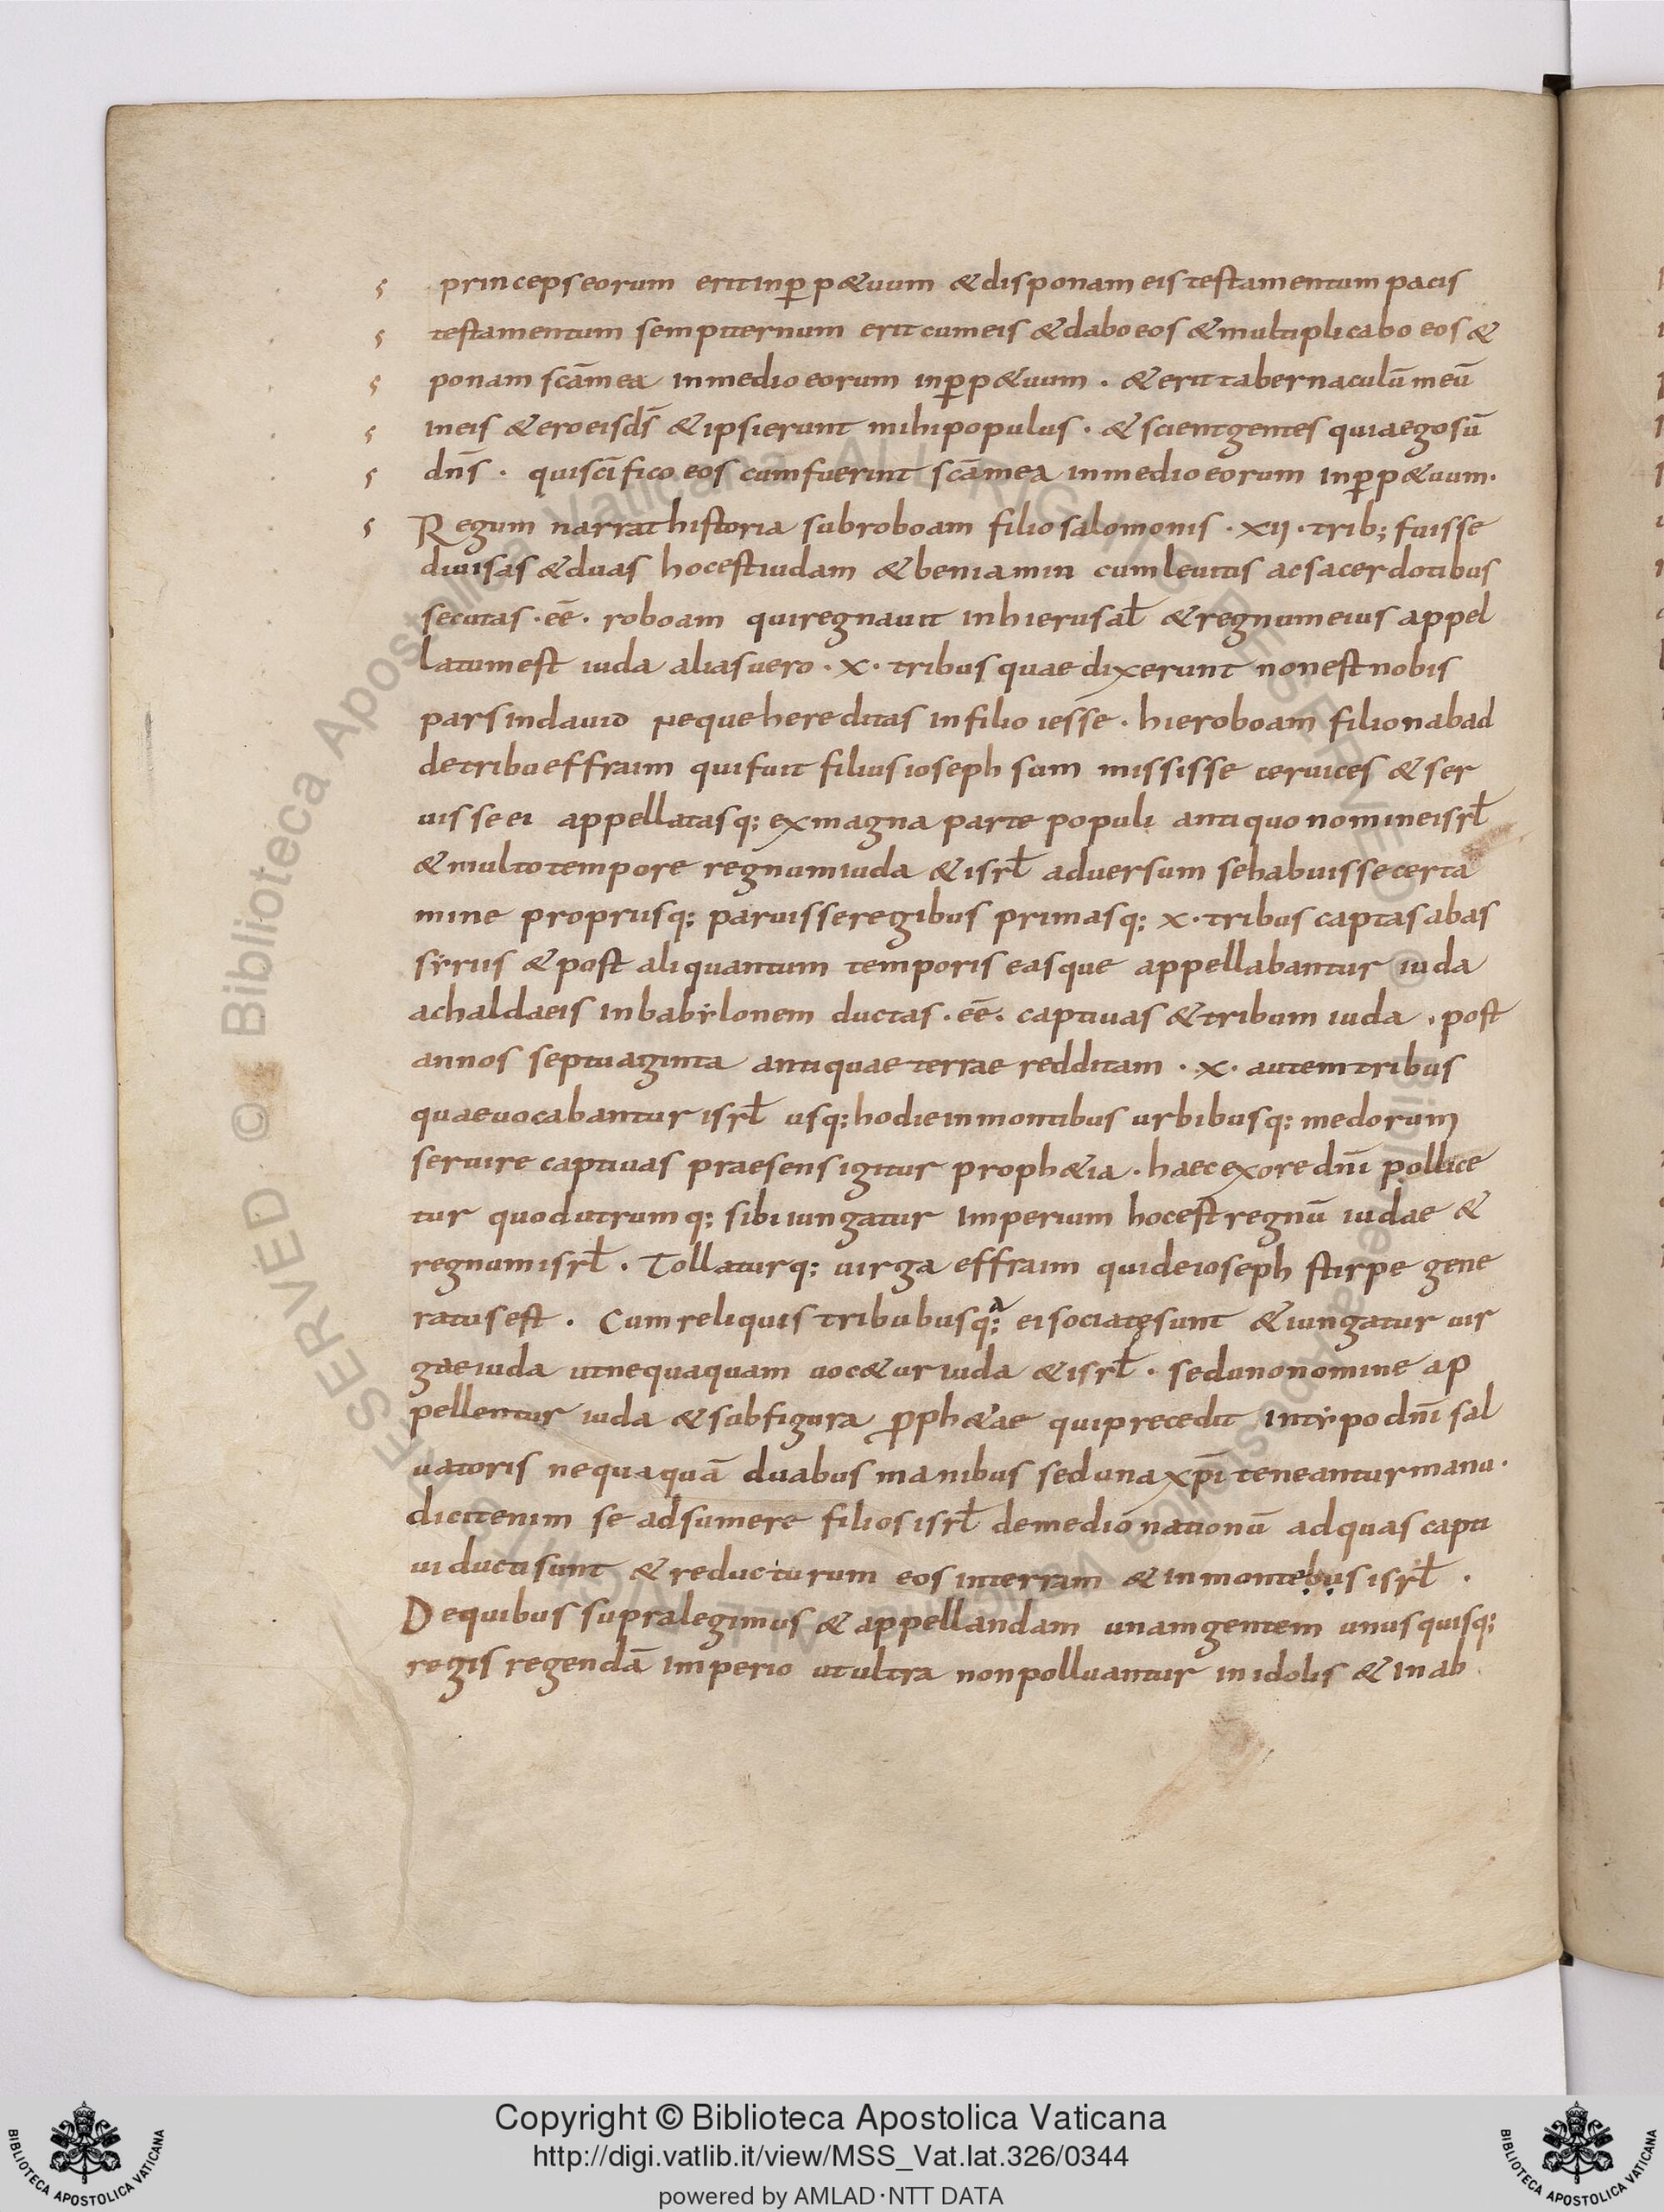 princeps eorum erit inp̱ p&uum & disponam eis testamentum pacis
testamentum sempiternum erit cum eis & dabo eos & multiplicabo eos &
ponam sc̄a mea inmedio eorum inp̱p&uum · & erit tabernaculū meū
ineis & ero eis ds̄ & ipsi erunt mihi populus · & scient gentes quia ego sū
dn̄s · qui sc̄ifico eos cum fuerint sc̄a mea inmedio eorum inp̱p&uum ·
Regum narrat historia sub roboam filio salomonis · xii · trib; fuisse
diuisas & duas hoc est iudam & beniamin cum leuitis ac sacerdotibus
secutas · eē · roboam qui regnauit in hierusal̄ & regnum eius appel
latum est iuda alias uero · x · tribus quae dixerunt non est nobis
pars in dauid neque hereditas in filio iesse · hieroboam filio nabad
de tribu effraim qui fuit filius ioseph sum misisse ceruices & ser
uisse ei appellatasq; ex magna parte populi antiquo nomine isrl̄
& multo tempore regnum iuda & isrl̄ aduersum se habuisse certa
mine propriisq; paruisse regibus primasq; x · tribus captas ab as
syriis & post aliquantum temporis easque appellabantur iuda
a chaldaeis in babylonem ductas · eē · captiuas & tribum iuda · post
annos septuaginta antiquae terrae redditam · x · autem tribus
quae uocabantur isrl̄ usq; hodie in montibus urbibusq; medorum
seruire captiuas praesens igitur proph&ia · haec ex ore dn̄i pollice
tur quod utrumq; sibi iungatur imperium hoc est regnū iudae &
regnum isrl̄ · Tollaturq; uirga effraim qui de ioseph stirpe gene
ratus est · Cum reliquis tribubus q;a ei sociatę sunt & iungatur uir
gae iuda ut nequaquam uoc&ur iuda & isrl̄ · sed uno nomine ap
pellentur iuda & sub figura ꝓph&ae qui precedit in typo dn̄i sal
uatoris nequaquā duabus manibus sed una xp̄i teneantur manu ·
dicit enim se adsumere filios isrl̄ de medio nationū ad quas capti
ui ducti sunt & reducturum eos in terram & in montebus isrl̄ ·
De quibus supra legimus & appellandam unam gentem unusquisq;
regis regendā imperio ut ultra non polluantur in idolis & in ab
Copyright © Biblioteca Apostolica Vaticana
http://digi.vatlib.it/view/MSS_Vat.lat.326/0344
powered by AMLAD·NTT DATA
BIBLIOTECA APOSTOLICA VATICANA
BIBLIOTECA APOSTOLICA VATICANA